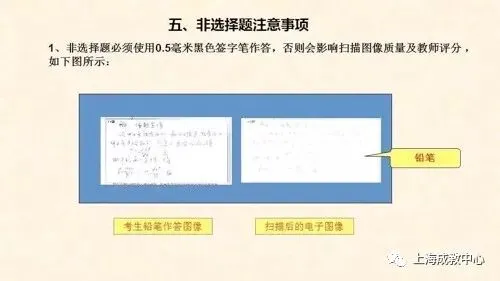 五、非选择题注意事项
1、非选择题必须使用0.5毫米黑色签字笔作答，否则会影响扫描图像质量及教师评分，
如下图所示：
铅笔
考生铅笔作答图像
扫描后的电子图像
上海成教中心